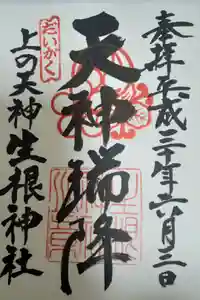 奉拝平成三十年六月二日
天神端降
だいがく
上の天神生根神社